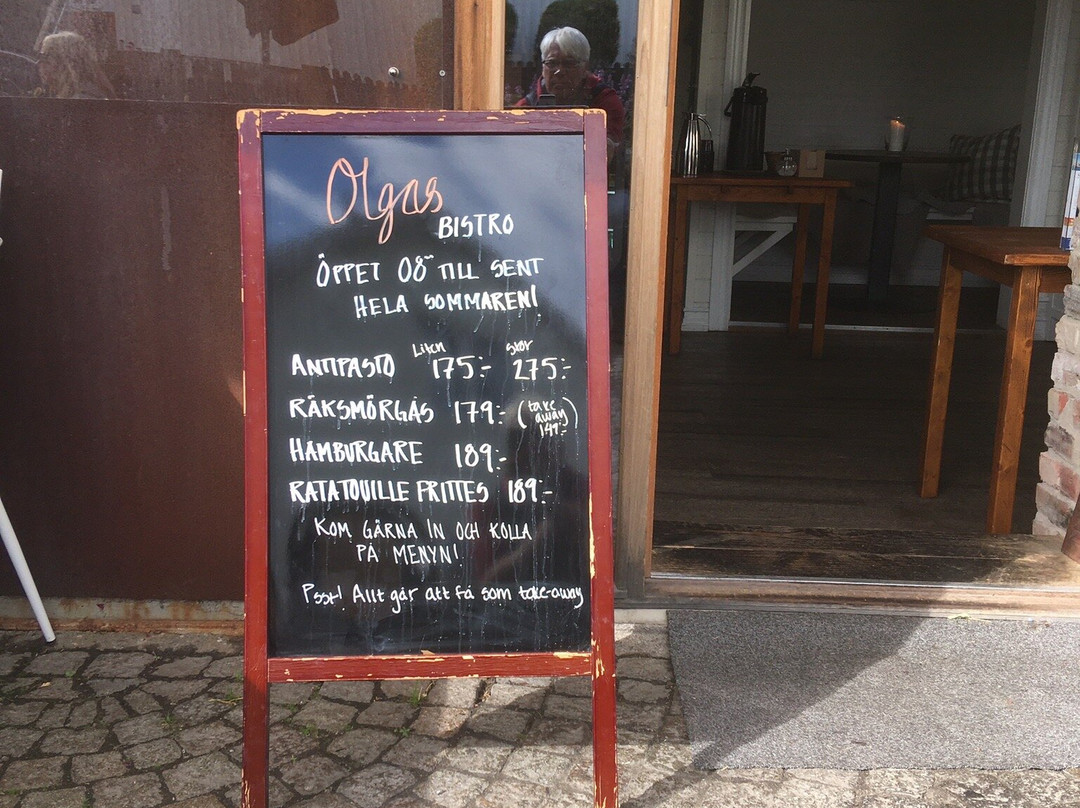 Olgas
BISTRO
ÖPPET 08⁰⁰ TILL SENT
HELA SOMMAREN!
Liten Stor
ANTIPASTO 175:- 275:-
RÄKSMÖRGÅS 179:- (take away 149:-)
HAMBURGARE 189:-
RATATOUILLE FRITTES 189:-
KOM GÄRNA IN OCH KOLLA
PÅ MENYN!
Psst! Allt går att få som take-away